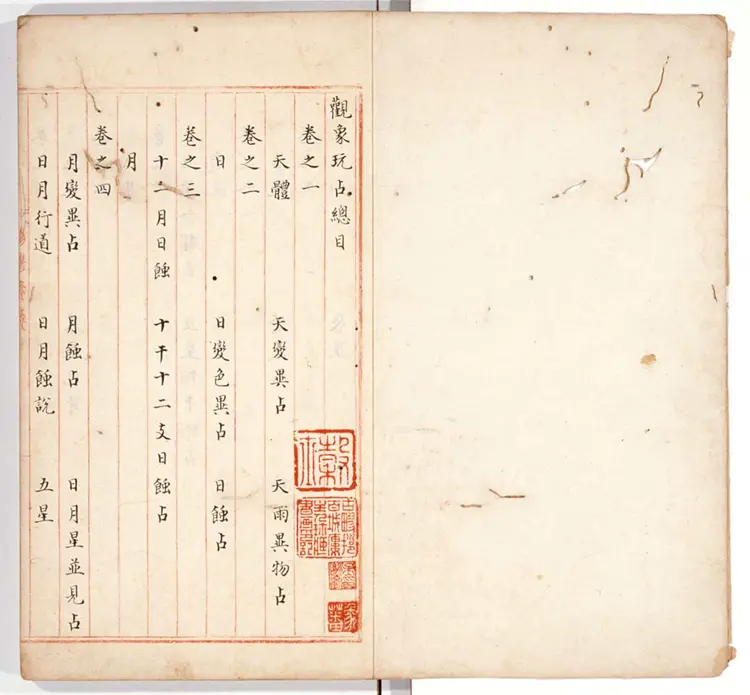 觀象玩占總目
卷之一
天體 天變異占 天雨異物占
卷之二
日 日變色異占 日蝕占
卷之三
十二月日蝕 十干十二支日蝕占
月
卷之四
月變異占 月蝕占 日月星並見占
日月行道 日月蝕說 五星